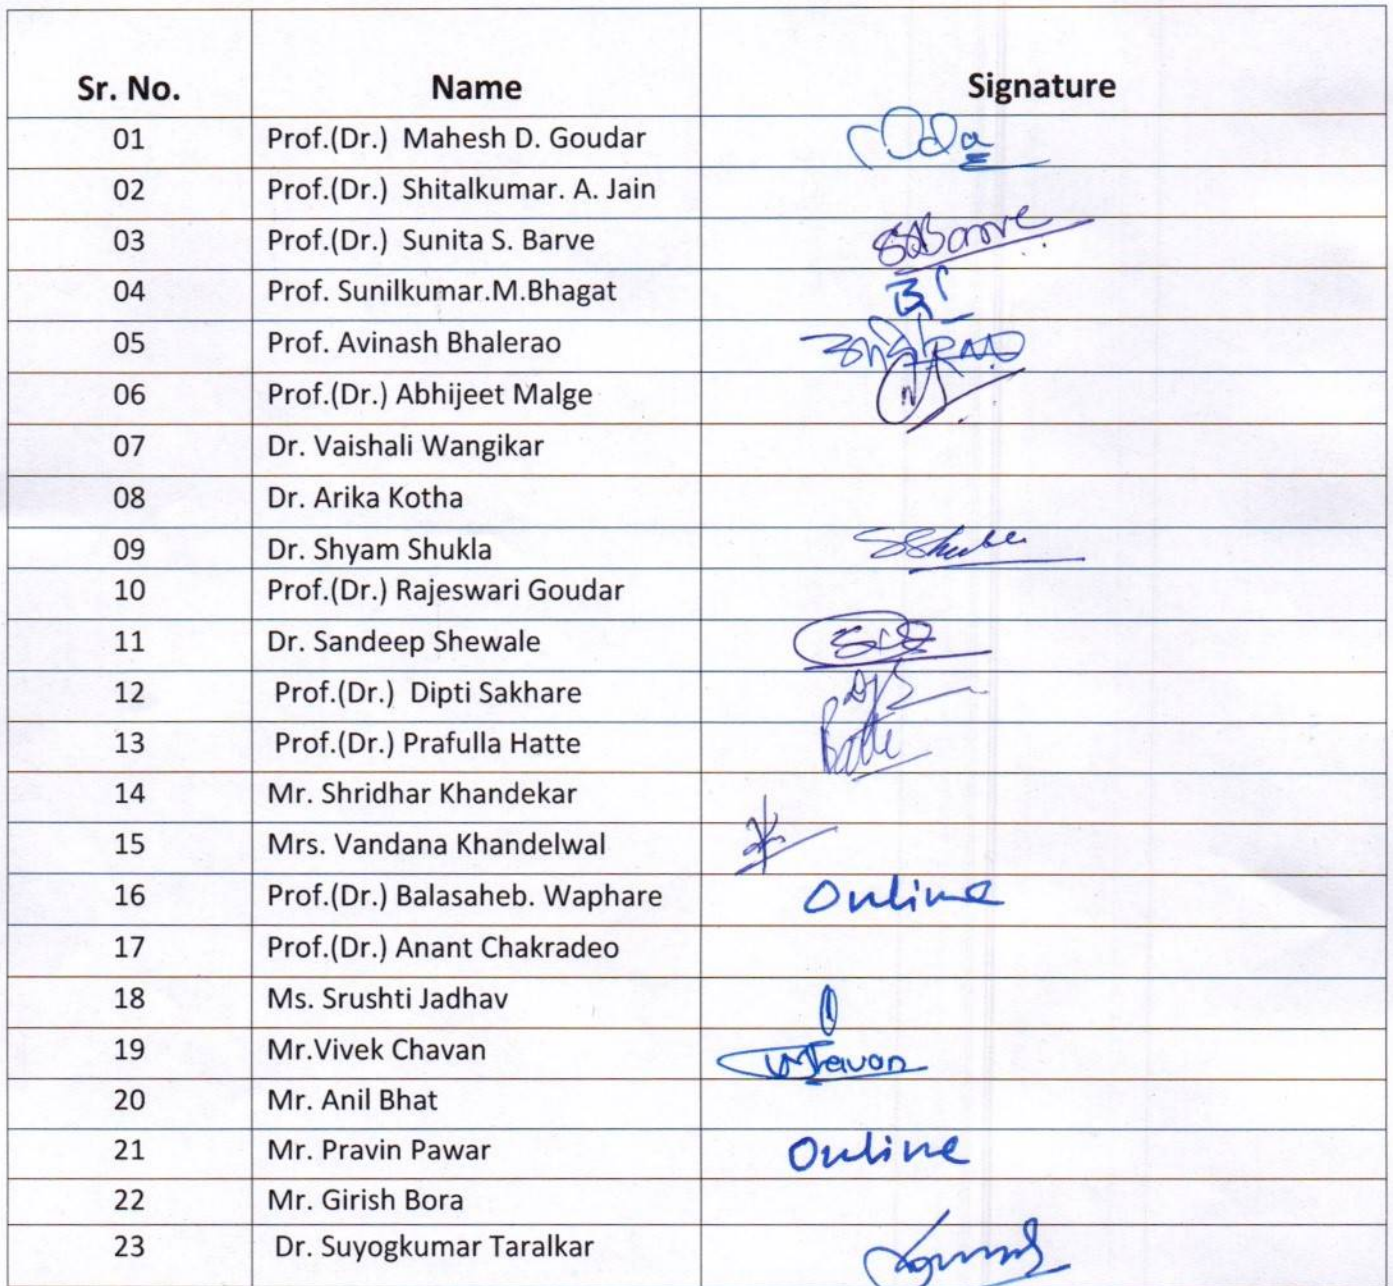 Sr. No. Name Signature
01 Prof.(Dr.) Mahesh D. Goudar
02 Prof.(Dr.) Shitalkumar. A. Jain
03 Prof.(Dr.) Sunita S. Barve SSBarve
04 Prof. Sunilkumar.M.Bhagat
05 Prof. Avinash Bhalerao
06 Prof.(Dr.) Abhijeet Malge
07 Dr. Vaishali Wangikar
08 Dr. Arika Kotha
09 Dr. Shyam Shukla SShukla
10 Prof.(Dr.) Rajeswari Goudar
11 Dr. Sandeep Shewale
12 Prof.(Dr.) Dipti Sakhare
13 Prof.(Dr.) Prafulla Hatte
14 Mr. Shridhar Khandekar
15 Mrs. Vandana Khandelwal
16 Prof.(Dr.) Balasaheb. Waphare Online
17 Prof.(Dr.) Anant Chakradeo
18 Ms. Srushti Jadhav
19 Mr.Vivek Chavan
20 Mr. Anil Bhat
21 Mr. Pravin Pawar Online
22 Mr. Girish Bora
23 Dr. Suyogkumar Taralkar